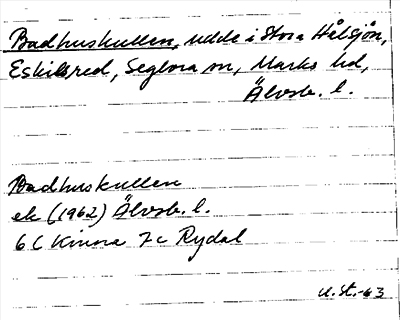 Badhuskullen, udde i Stora Hålsjön,
Eskilsred, Seglora sn, Marks hd,
Älvsb. l.
Badhuskullen
ek (1962) Älvsb. l.
6 C Kinna 7 c Rydal
U. St. -63